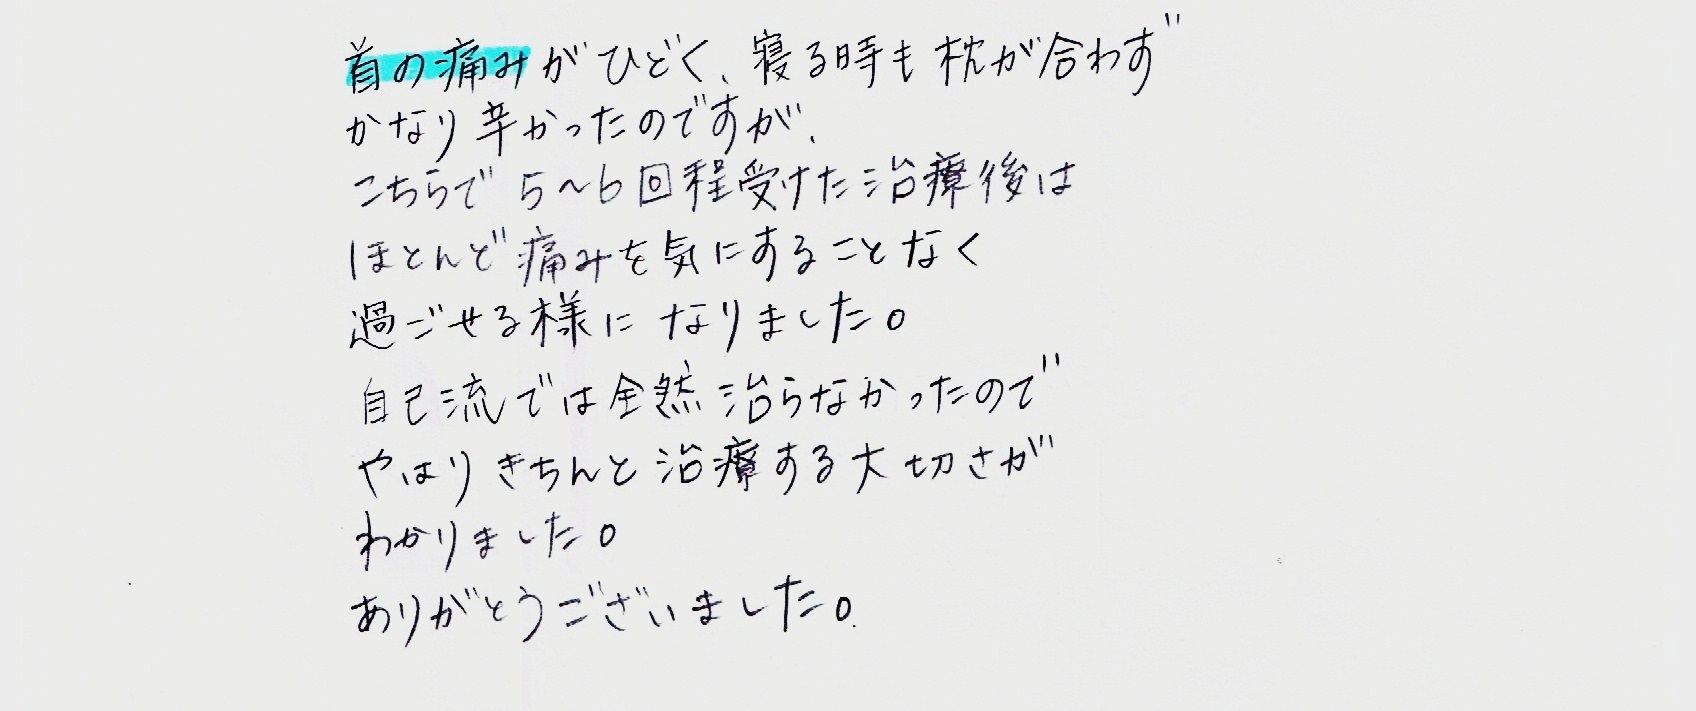 首の痛みがひどく、寝る時も枕が合わず
かなり辛かったのですが、
こちらで5〜6回程受けた治療後は
ほとんど痛みを気にすることなく
過ごせる様になりました。
自己流では全然治らなかったので
やはりきちんと治療する大切さが
わかりました。
ありがとうございました。